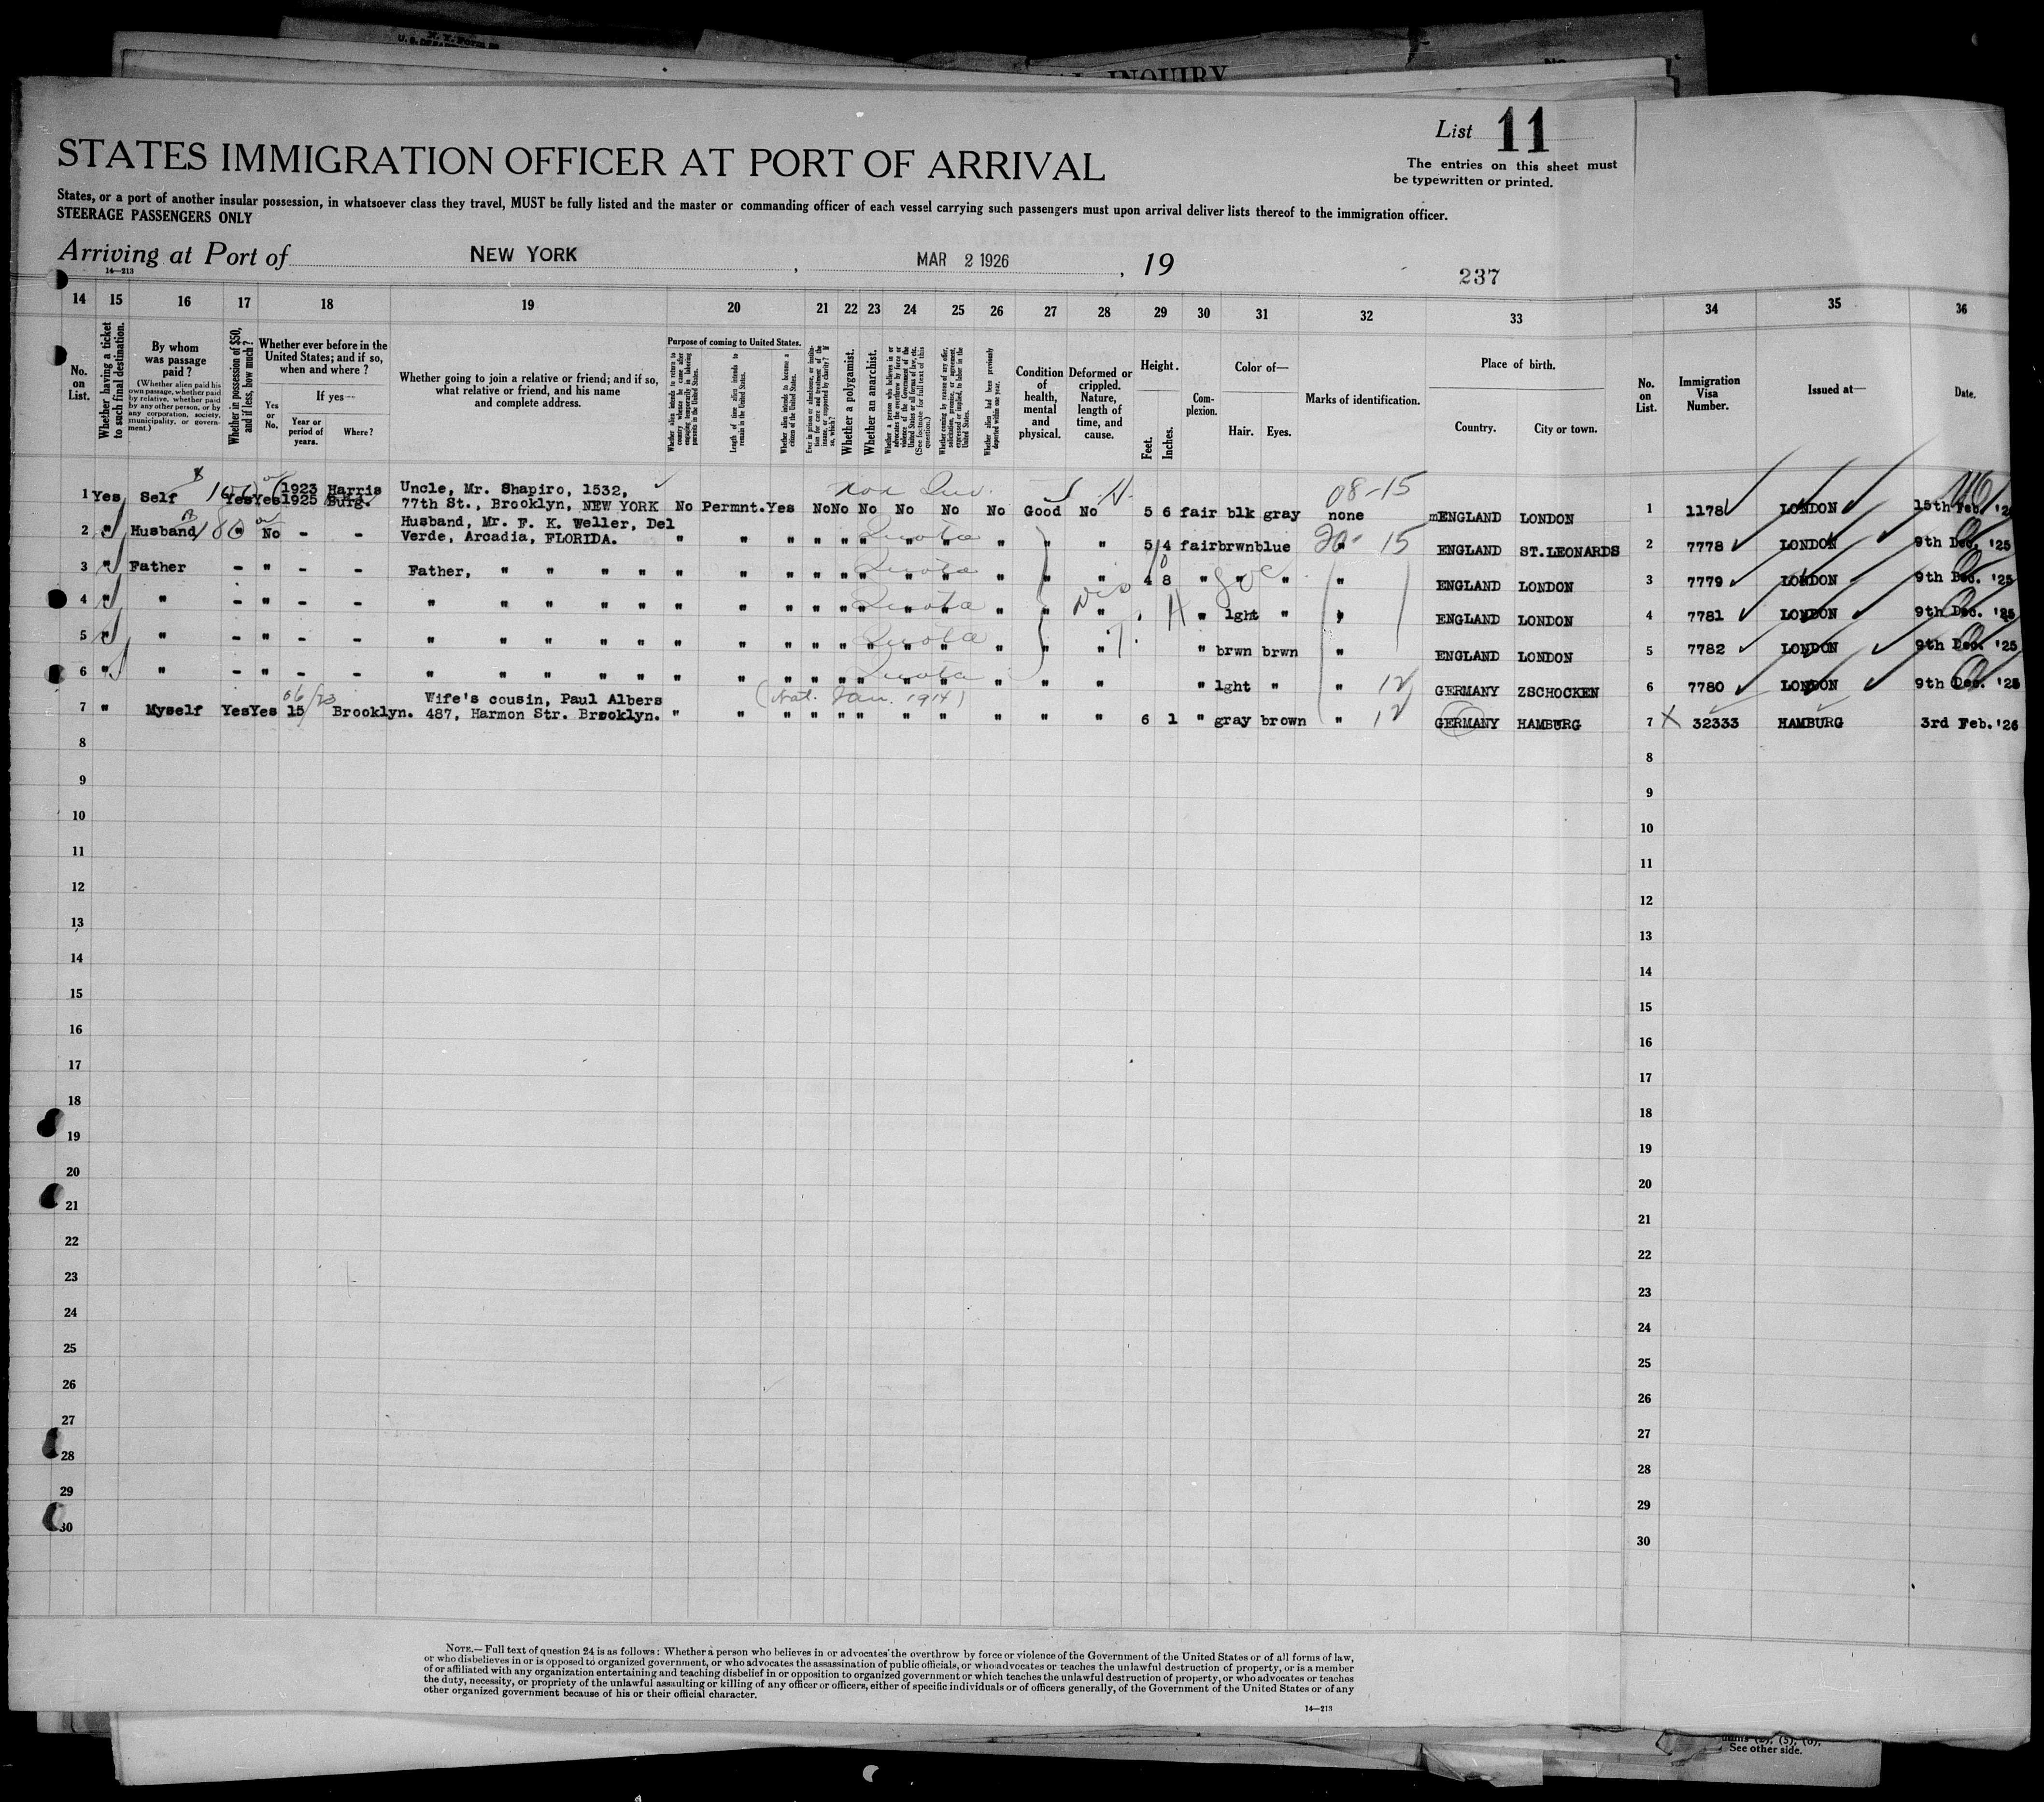 N. Y. Form
INQUIRY
No.
List 11
STATES IMMIGRATION OFFICER AT PORT OF ARRIVAL
The entries on this sheet must
be typewritten or printed.
States, or a port of another insular possession, in whatsoever class they travel, MUST be fully listed and the master or commanding officer of each vessel carrying such passengers must upon arrival deliver lists thereof to the immigration officer.
STEERAGE PASSENGERS ONLY
Arriving at Port of NEW YORK, MAR 2 1926, 19
14—213
237
14 15 16 17 18 19 20 21 22 23 24 25 26 27 28 29 30 31 32 33 34 35 36
No. on List.
Whether having a ticket to such final destination.
By whom was passage paid?
(Whether alien paid his own passage, whether paid by relative, whether paid by any other person, or by any corporation, society, municipality, or government.)
Whether in possession of $50, and if less, how much?
Whether ever before in the United States; and if so, when and where?
Yes or No.
If yes—
Year or period of years.
Where?
Whether going to join a relative or friend; and if so, what relative or friend, and his name and complete address.
Purpose of coming to United States.
Whether alien intends to return to country whence he came after engaging temporarily in laboring pursuits in the United States.
Length of time alien intends to remain in the United States.
Whether alien intends to become a citizen of the United States.
Whether a polygamist.
Whether an anarchist.
Whether alien had been previously deported within one year.
Condition of health, mental and physical.
Deformed or crippled. Nature, length of time, and cause.
Height.
Feet.
Inches.
Complexion.
Color of—
Hair.
Eyes.
Marks of identification.
Place of birth.
Country.
City or town.
No. on List.
Immigration Visa Number.
Issued at—
Date.
1 Yes Self 100 Yes Yes 1923 1925 Harris Burg. Uncle, Mr. Shapiro, 1532, 77th St., Brooklyn, NEW YORK No Permnt. Yes No No No No No No Good No 5 6 fair blk gray none 08-15 ENGLAND LONDON 1 1178 LONDON 15th Feb. '26
2 " Husband 80 " No - - Husband, Mr. F. K. Weller, Del Verde, Arcadia, FLORIDA. " " " " " " " " " " " Quota 5 4 fair brwn blue " 20-15 ENGLAND ST.LEONARDS 2 7778 LONDON 9th Dec. '25
3 " Father - " - - Father, " " " " " " " " " " " " " " " " Quota 4 8 " " " " ENGLAND LONDON 3 7779 LONDON 9th Dec. '25
4 " " - " - - " " " " " " " " " " " " " " " " Quota " lght " " ENGLAND LONDON 4 7781 LONDON 9th Dec. '25
5 " " - " - - " " " " " " " " " " " " " " " " Quota " brwn brwn " ENGLAND LONDON 5 7782 LONDON 9th Dec. '25
6 " " - " - - " " " " " " " " " " " " " " " " Quota " lght " " 12 GERMANY ZSCHOCKEN 6 7780 LONDON 9th Dec. '25
7 " Myself Yes Yes 06/23 15 Brooklyn. Wife's cousin, Paul Albers 487, Harmon Str. Brooklyn. " " " " " " " " " " " (Nat. Jan. 1914) 6 1 " gray brown " 12 GERMANY HAMBURG 7 X 32333 HAMBURG 3rd Feb. '26
8 8
9 9
10 10
11 11
12 12
13 13
14 14
15 15
16 16
17 17
18 18
19 19
20 20
21 21
22 22
23 23
24 24
25 25
26 26
27 27
28 28
29 29
30 30
NOTE.—Full text of question 24 is as follows: Whether a person who believes in or advocates the overthrow by force or violence of the Government of the United States or of all forms of law,
or who disbelieves in or is opposed to organized government, or who advocates the assassination of public officials, or who advocates or teaches the unlawful destruction of property, or is a member
of or affiliated with any organization entertaining and teaching disbelief in or opposition to organized government or which teaches the unlawful destruction of property, or who advocates or teaches
the duty, necessity, or propriety of the unlawful assaulting or killing of any officer or officers, either of specific individuals or of officers generally, of the Government of the United States or of any
other organized government because of his or their official character.
14—213
See other side.